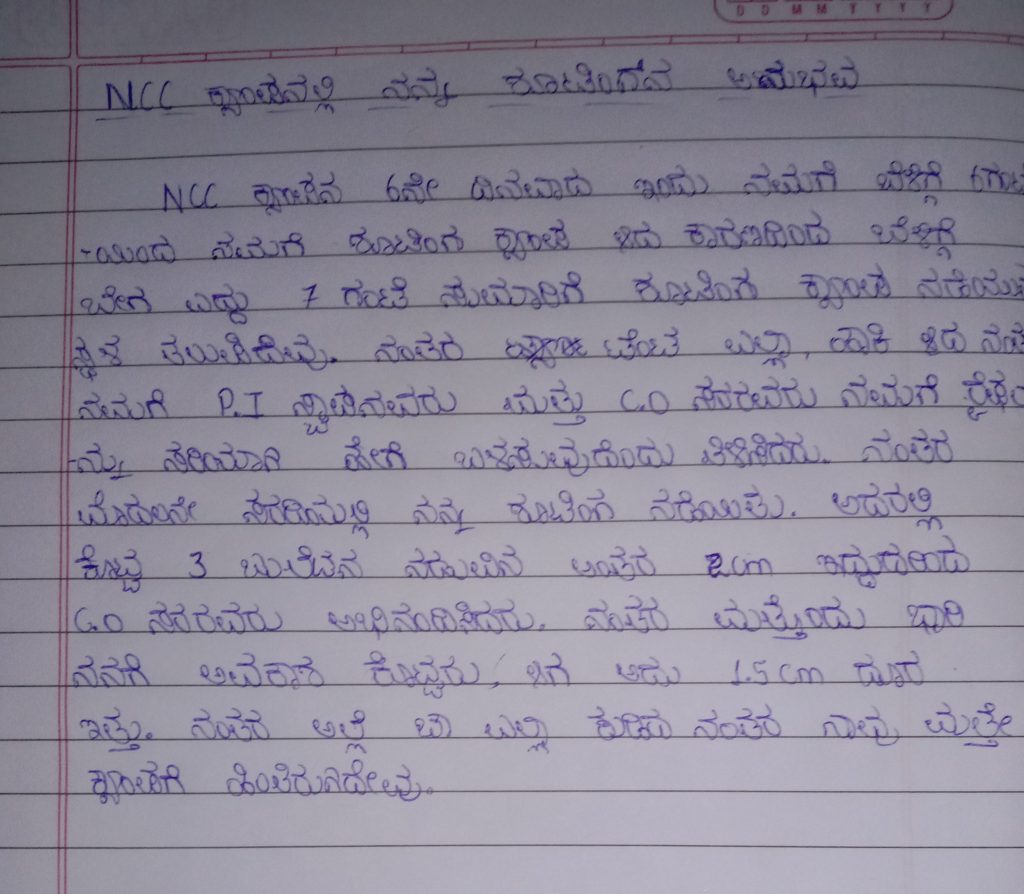 D D M M Y Y Y Y
NCC ಕ್ಯಾಂಪಿನಲ್ಲಿ ನನ್ನ ಶೂಟಿಂಗಿನ ಅನುಭವ
NCC ಕ್ಯಾಂಪಿನ 6ನೇ ದಿನವಾದ ಇಂದು ನಮಗೆ ಬೆಳಿಗ್ಗೆ 6ಗಂಟೆ
-ಯಿಂದ ನಮಗೆ ಶೂಟಿಂಗ ಕ್ಯಾಂಪ ಇದ ಕಾರಣದಿಂದ ಬೆಳಿಗ್ಗೆ
ಬೇಗ ಎದ್ದು 7 ಗಂಟೆ ಸುಮಾರಿಗೆ ಶೂಟಿಂಗ ಕ್ಯಾಂಪ ನಡೆಯುವ
ಸ್ಥಳ ತಲುಪಿದೇವು. ನಂತರ ಟೆಂಟ ಎಲ್ಲಾ, ಹಾಕಿ ಇದ ನಂತರ
ನಮಗೆ P.I ಸ್ಟಾಫನವರು ಮತ್ತು C.O ಸರರವರು ನಮಗೆ ರೈಫಲ
-ನ್ನು ಸರಿಯಾಗಿ ಹೇಗೆ ಬಳಸುವುದೆಂದು ತಿಳಿಸಿದರು. ನಂತರ
ಮೊದಲನೇ ಸರದಿಯಲ್ಲಿ ನನ್ನ ಶೂಟಿಂಗ ನಡೆಯಿತು. ಅದರಲ್ಲಿ
ಕೊಟ್ಟ 3 ಬುಲೆಟಿನ ನಡುವಿನ ಅಂತರ 2cm ಇದ್ದುದರಿಂದ
C.O ಸರರವರು ಅಭಿನಂದಿಸಿದರು. ನಂತರ ಮತ್ತೊಂದು ಭಾರಿ
ನನಗೆ ಅವಕಾಶ ಕೊಟ್ಟರು, ಆಗ ಅದು 1.5cm ದೂರ
ಇತ್ತು. ನಂತರ ಅಲ್ಲೆ ಚಾ ಎಲ್ಲಾ ಕುಡಿದ ನಂತರ ನಾವು ಮತ್ತೇ
ಕ್ಯಾಂಪಗೆ ಹಿಂತಿರುಗಿದೇವು.